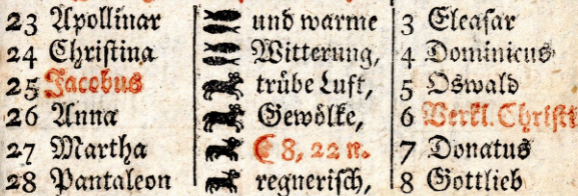 23 Apollinar und warme 3 Eleasar
24 Christina Witterung, 4 Dominicus
25 Jacobus trübe Luft, 5 Oswald
26 Anna Gewölke, 6 Verkl. Christi
27 Martha ☾ 8, 22 n. 7 Donatus
28 Pantaleon regnerisch, 8 Gottlieb